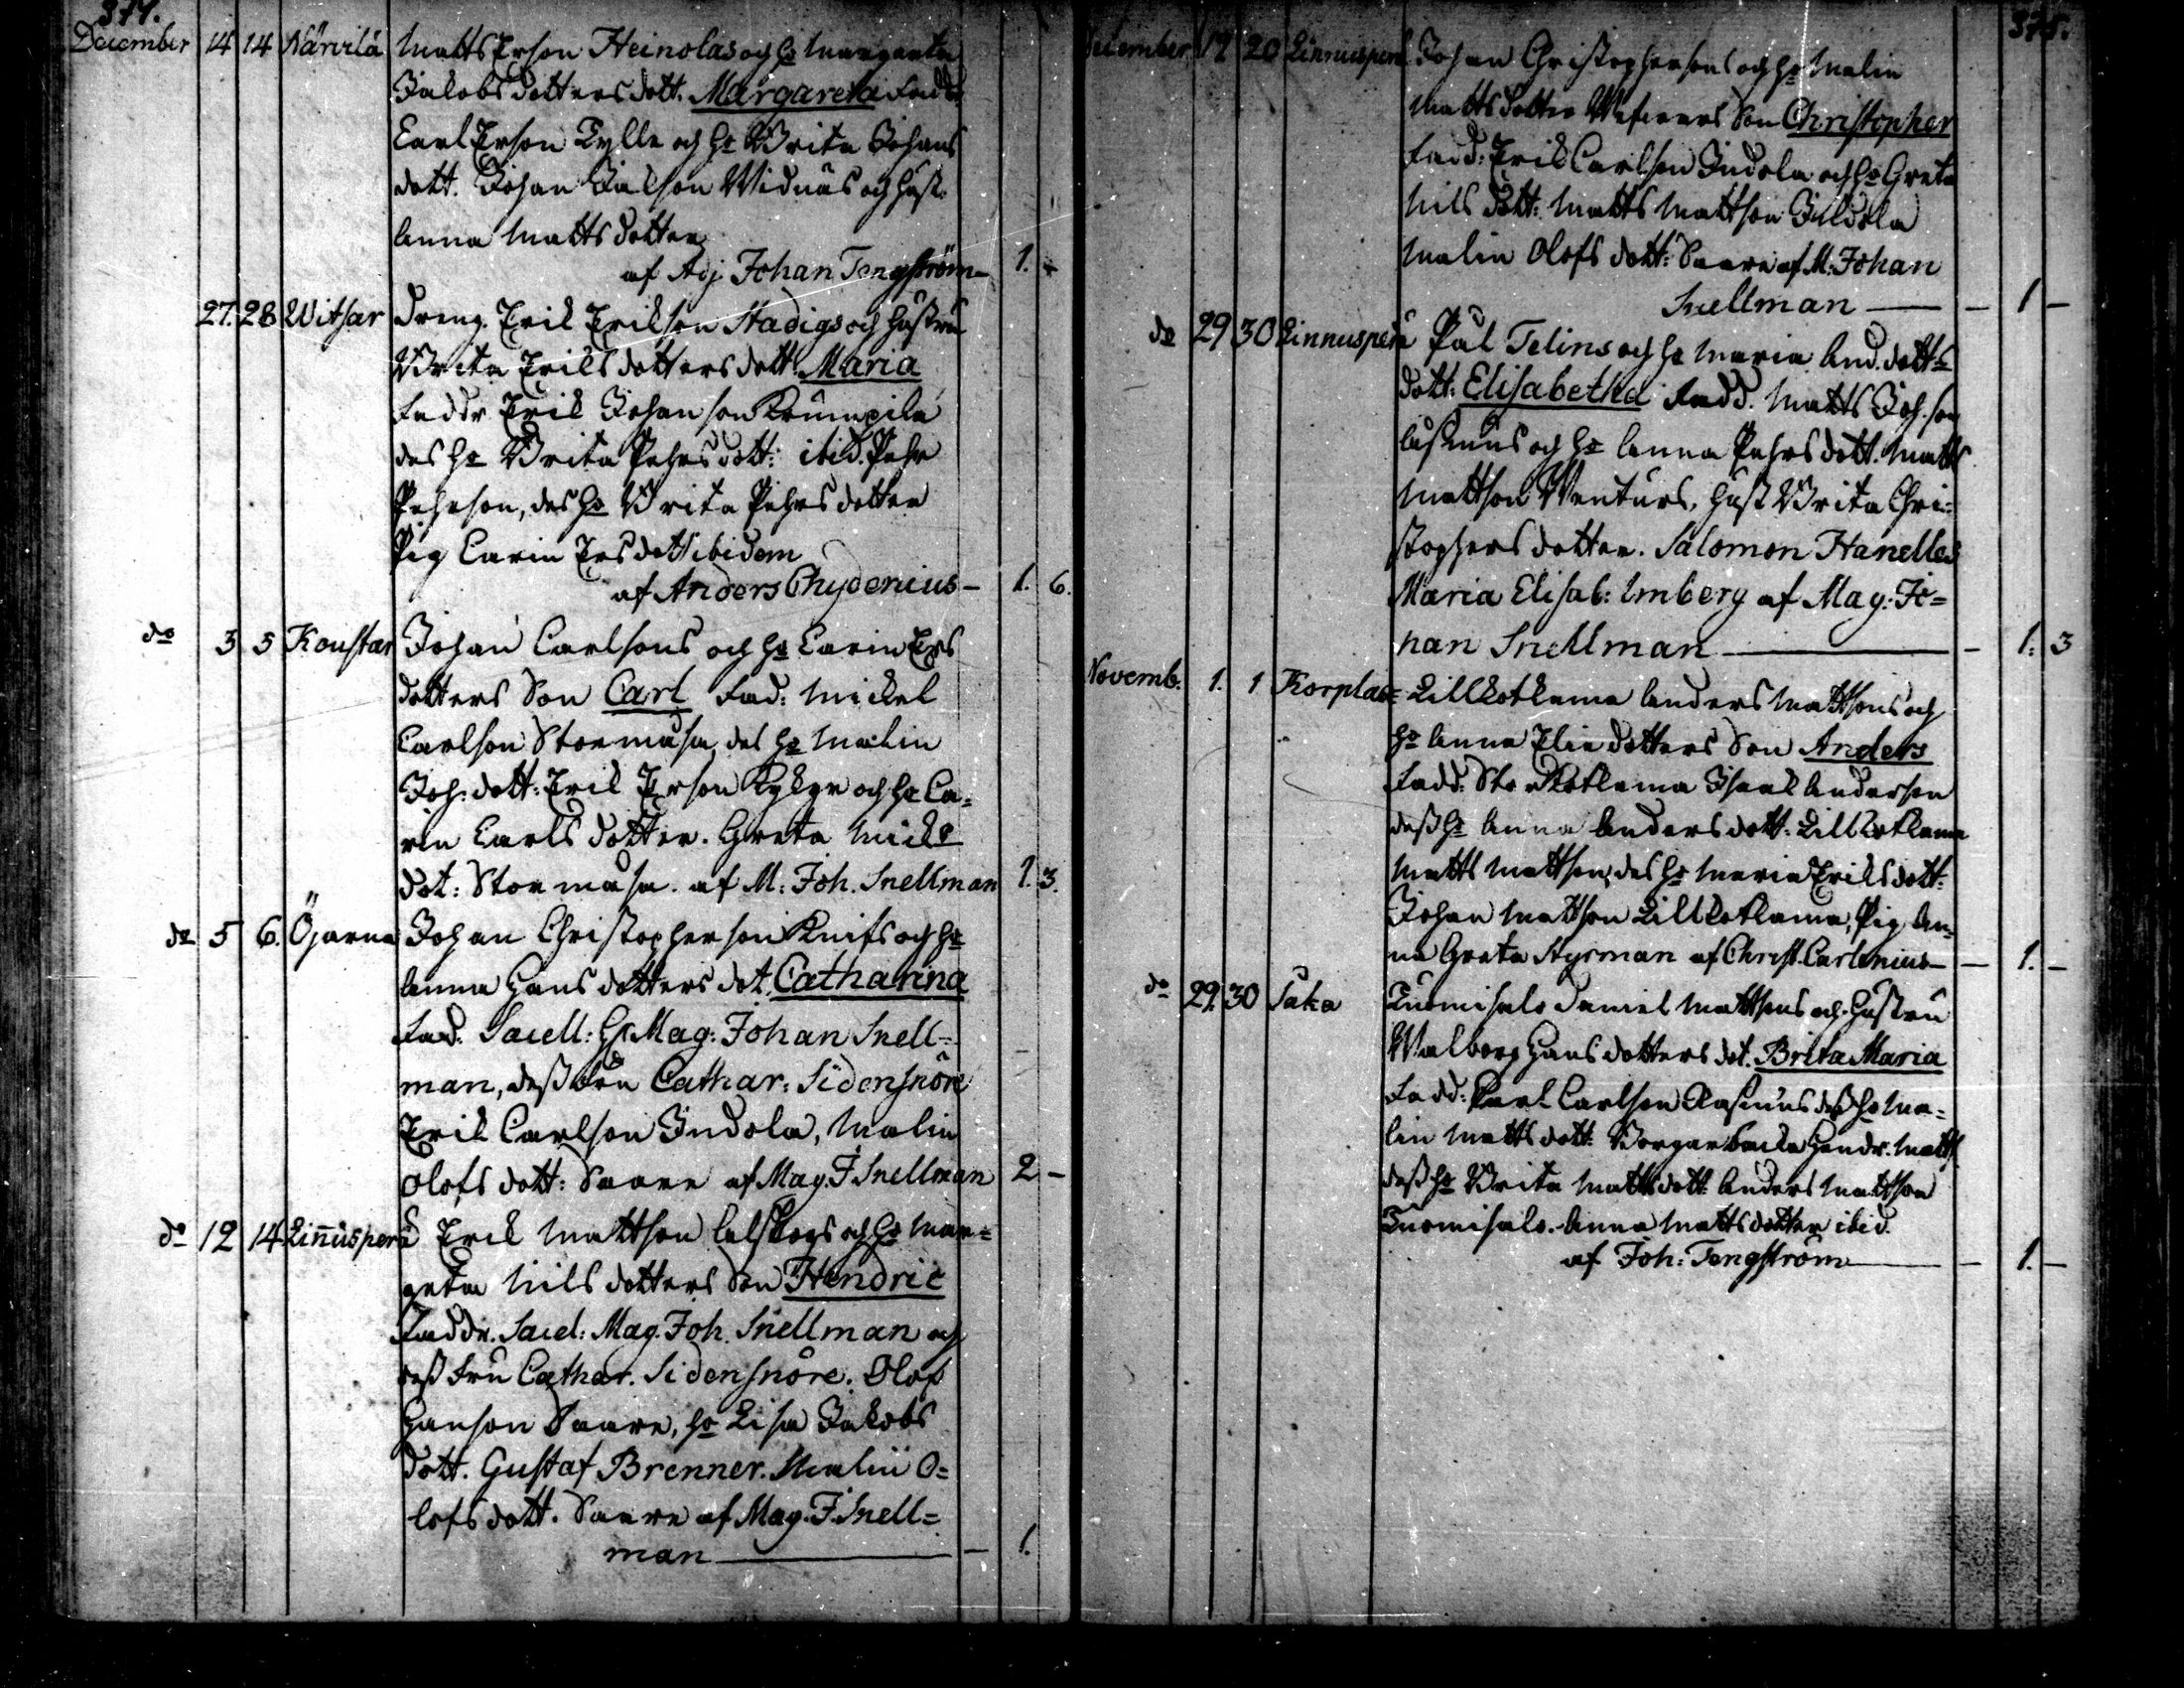 374.
December 14 14 Närvilä Matts Erson Heinolas och h: Margareta
Jakobs dotters dott. Margareta Fadd:
Carl Erson Tylle och h: Brita Johans
dott. Johan Jakson Widnäs och hust.
Anna Matts dotter
af Adj. Johan Tengström 1. -
27. 28 Witsar Dreng. Erik Erikson Stadigs och hustru
Brita Eriks dotters dott. Maria
Faddr. Erik Johanson
des h: Brita Pehrs dott: ibid. Pehr
Pehrson, des h: Brita Pehrs dotter
Pig Carin Ers dott ibidem
af Anders Chydenius - 1. 6.
do 3 5 Koustar Johan Carlsons och h: Carin Ers
dotters Son Carl Fad: Mickel
Carlson Stormåsa, des h: Malin
Joh: dott: Erik Erson Kykyr och h: Ca=
rin Carls dotter. Greta Mick:
dot: Stormåsa. af M: Joh. Snellman 1. 3.
do 5 6. Öjarna Johan Christopherson Knifs och h:
Anna Hans dotters dot. Catharina
Fad. Sacell: H: Mag: Johan Snell=
man, dess Fru Cathar: Sidensnöre
Erik Carlson Indola, Malin
Olofs dott: Saare af Mag. J. Snellman 2 -
do 12 14 Linnusperä Erik Mattson Calskogs och h: Mar=
geta Nils dotters Son Hendric
Faddr. Sacel: Mag. Joh. Snellman och
dess Fru Cathar. Sidensnöre. Olof
Hanson Saare, h: Lisa Jakobs
dott. Gustaf Brenner. Malin O=
lofs dott. Saare af Mag. J. Snell=
man - 1.
375.
December 19 20 Linnusperä Johan Christophersons och h: Malin
Matts dotter Son Christopher
Fadd: Erik Carlson Indola och h: Greta
Nils dott: Matts Mattson Juldola
Malin Olofs dott: Saare af M. Johan
Snellman - 1 -
do 29 30 Linnusperä Pål Telins och h: Maria And. dott:s
dott: Elisabetha Fadd. Matts Joh.son
och h: Anna Pehrs dott. Matts
Mattson Wenturs, hust Brita Chri=
stophers dotter. Salomon Hanelles
Maria Elisab: Imberg af Mag: Jo=
han Snellman - 1: 3
Novemb. 1. 1 Korplax= Lillkotkama Anders Mattsons och
h: Anna Elie dotters Son Anders
Fadd. Storkotkama Isaak Anderson
dess h: Anna Anders dott: Lillkotkama
Matts Mattson, des h: Maria Eriks dott.
Johan Mattson Lillkotkama, Pig An=
na Greta Hyrman af Christ. Carlenius - 1. -
do 29. 30 Såka Tuomisalo Daniel Mattsons och Hustru
Walborg Hans dotters dot. Brita Maria
Fadd: Carl Carlson Rasmus dess h: Ma=
lin Matts dott. Borgarbacka Hendr. Matts
dess h: Brita Matts dott Anders Mattson
Tuomisalo. Anna Matts dotter ibid.
af Joh: Tengström - 1. -